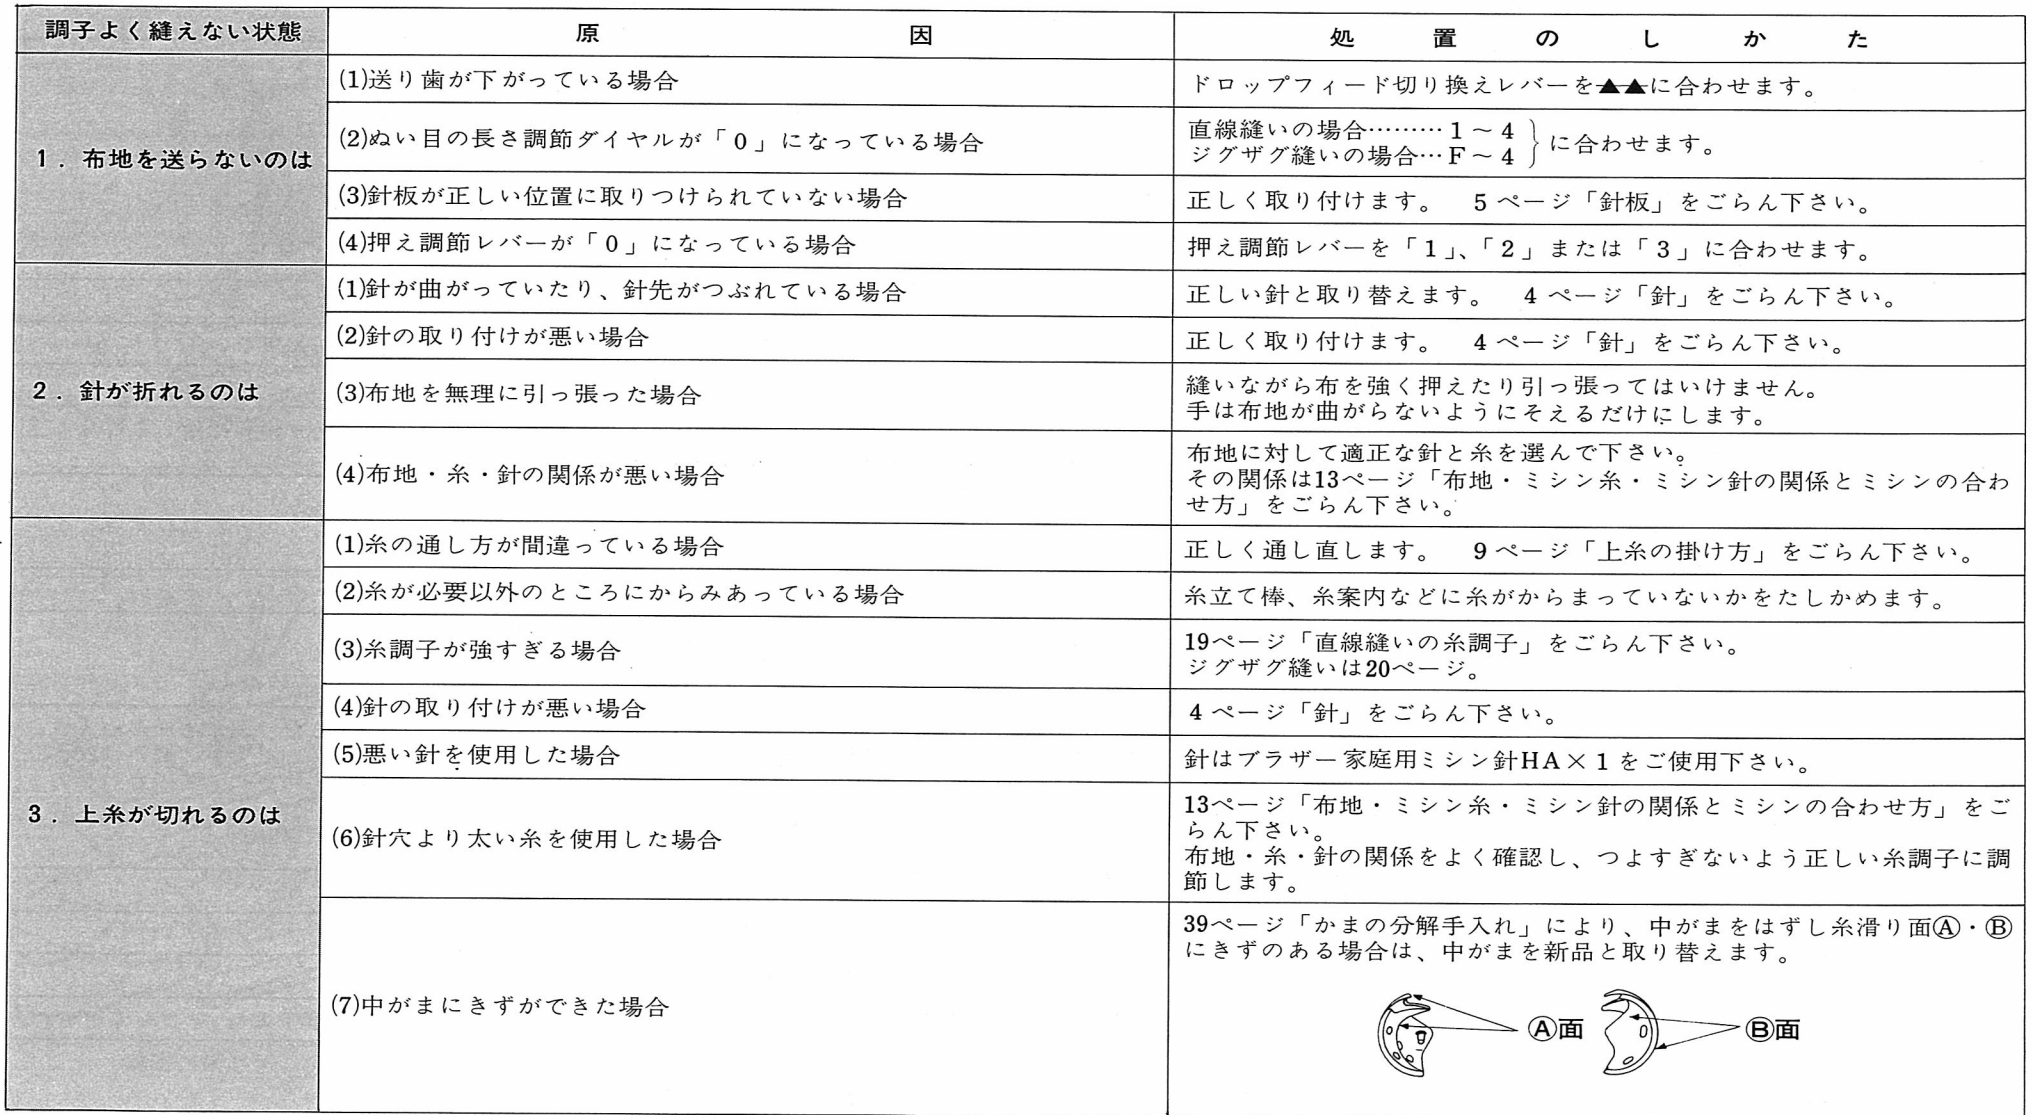 調子よく縫えない状態
原因
処置のしかた
1．布地を送らないのは
(1)送り歯が下がっている場合
ドロップフィード切り換えレバーを▲▲に合わせます。
(2)ぬい目の長さ調節ダイヤルが「0」になっている場合
直線縫いの場合………1～4
ジグザグ縫いの場合…F～4
に合わせます。
(3)針板が正しい位置に取りつけられていない場合
正しく取り付けます。　5ページ「針板」をごらん下さい。
(4)押え調節レバーが「0」になっている場合
押え調節レバーを「1」、「2」または「3」に合わせます。
2．針が折れるのは
(1)針が曲がっていたり、針先がつぶれている場合
正しい針と取り替えます。　4ページ「針」をごらん下さい。
(2)針の取り付けが悪い場合
正しく取り付けます。　4ページ「針」をごらん下さい。
(3)布地を無理に引っ張った場合
縫いながら布を強く押えたり引っ張ってはいけません。
手は布地が曲がらないようにそえるだけにします。
(4)布地・糸・針の関係が悪い場合
布地に対して適正な針と糸を選んで下さい。
その関係は13ページ「布地・ミシン糸・ミシン針の関係とミシンの合わ
せ方」をごらん下さい。
3．上糸が切れるのは
(1)糸の通し方が間違っている場合
正しく通し直します。　9ページ「上糸の掛け方」をごらん下さい。
(2)糸が必要以外のところにからみあっている場合
糸立て棒、糸案内などに糸がからまっていないかをたしかめます。
(3)糸調子が強すぎる場合
19ページ「直線縫いの糸調子」をごらん下さい。
ジグザグ縫いは20ページ。
(4)針の取り付けが悪い場合
4ページ「針」をごらん下さい。
(5)悪い針を使用した場合
針はブラザー家庭用ミシン針HA×1をご使用下さい。
(6)針穴より太い糸を使用した場合
13ページ「布地・ミシン糸・ミシン針の関係とミシンの合わせ方」をご
らん下さい。
布地・糸・針の関係をよく確認し、つよすぎないよう正しい糸調子に調
節します。
(7)中がまにきずができた場合
39ページ「かまの分解手入れ」により、中がまをはずし糸滑り面Ⓐ・Ⓑ
にきずのある場合は、中がまを新品と取り替えます。
Ⓐ面
Ⓑ面